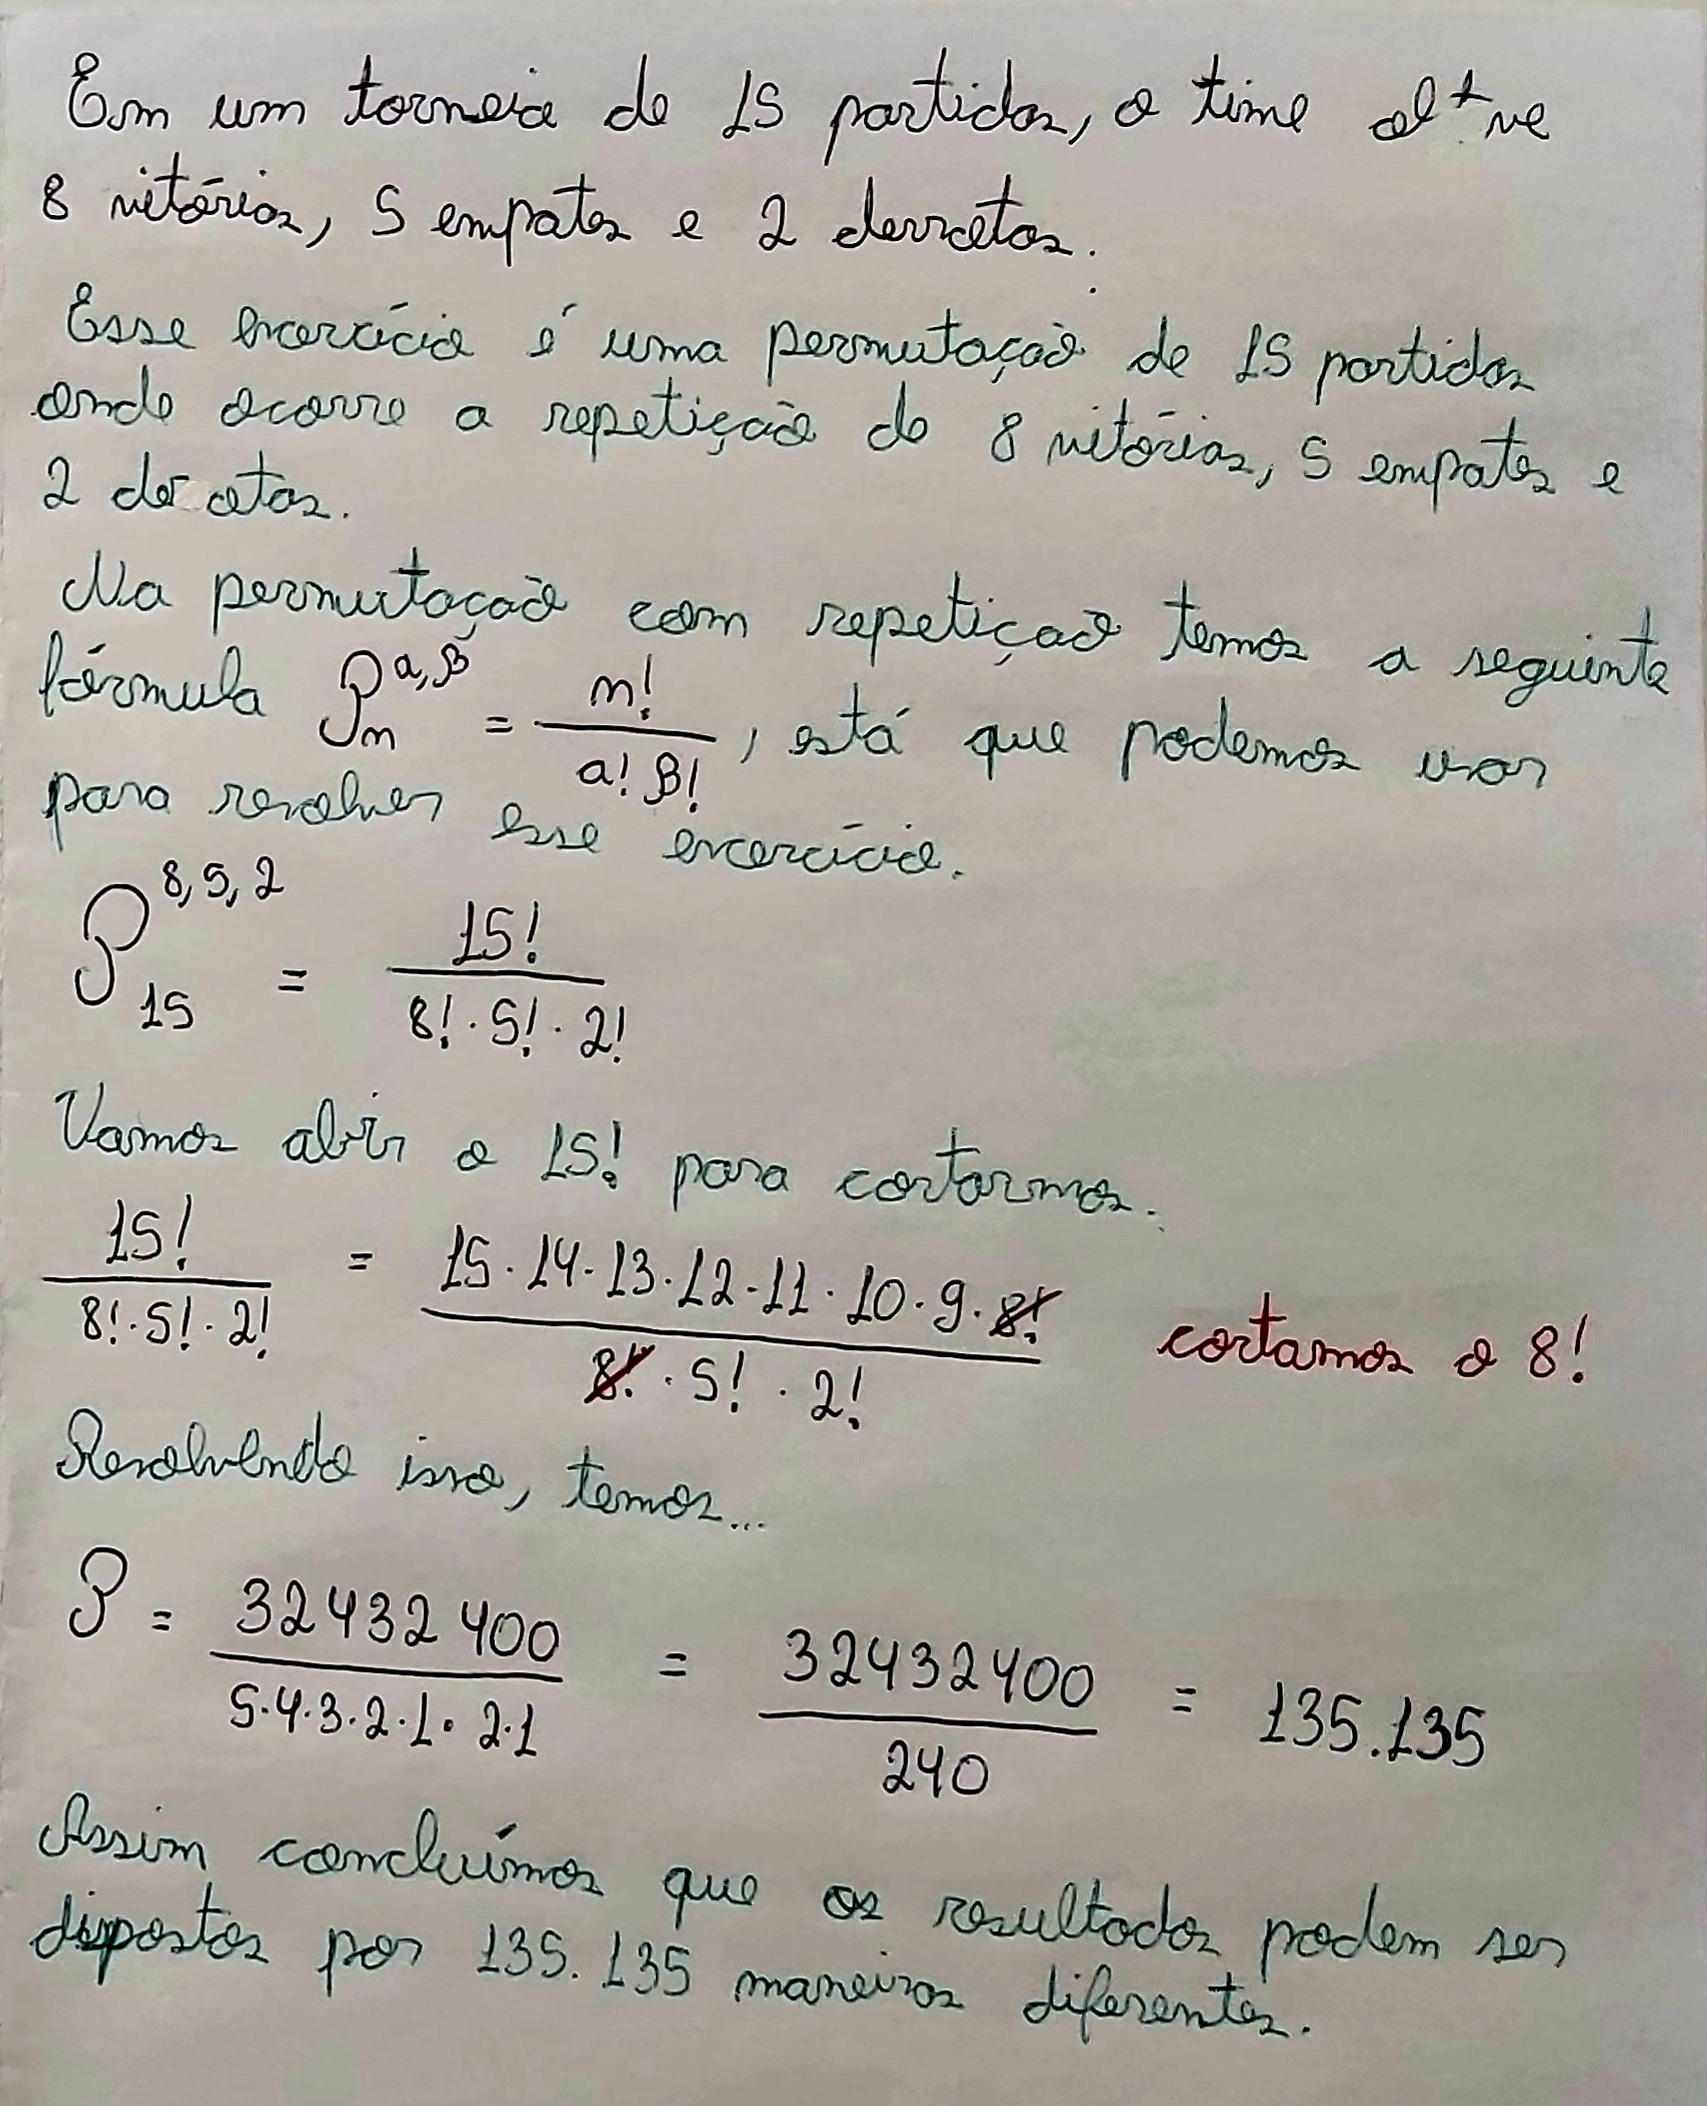 Em um torneio de 15 partidas, o time
8 vitórias, 5 empates e 2 derrotas.
Esse exercício é uma permutação de 15 partidas
onde ocorre a repetição de 8 vitórias, 5 empates e
2
Na permutação com repetição temos a seguinte
fórmula Pₙ^(a,β) = n! / (a! β!), está que podemos usar
para resolver esse exercício.
P₁₅^(8,5,2) = 15! / (8! · 5! · 2!)
Vamos abrir o 15! para cortarmos.
15! / (8! · 5! · 2!) = 15 · 14 · 13 · 12 · 11 · 10 · 9 · 8! / (8! · 5! · 2!) cortamos o 8!
Resolvendo isso, temos...
P = 32432400 / (5·4·3·2·1·2·1) = 32432400 / 240 = 135.135
Assim concluímos que os resultados podem ser
dispostos por 135.135 maneiras diferentes.